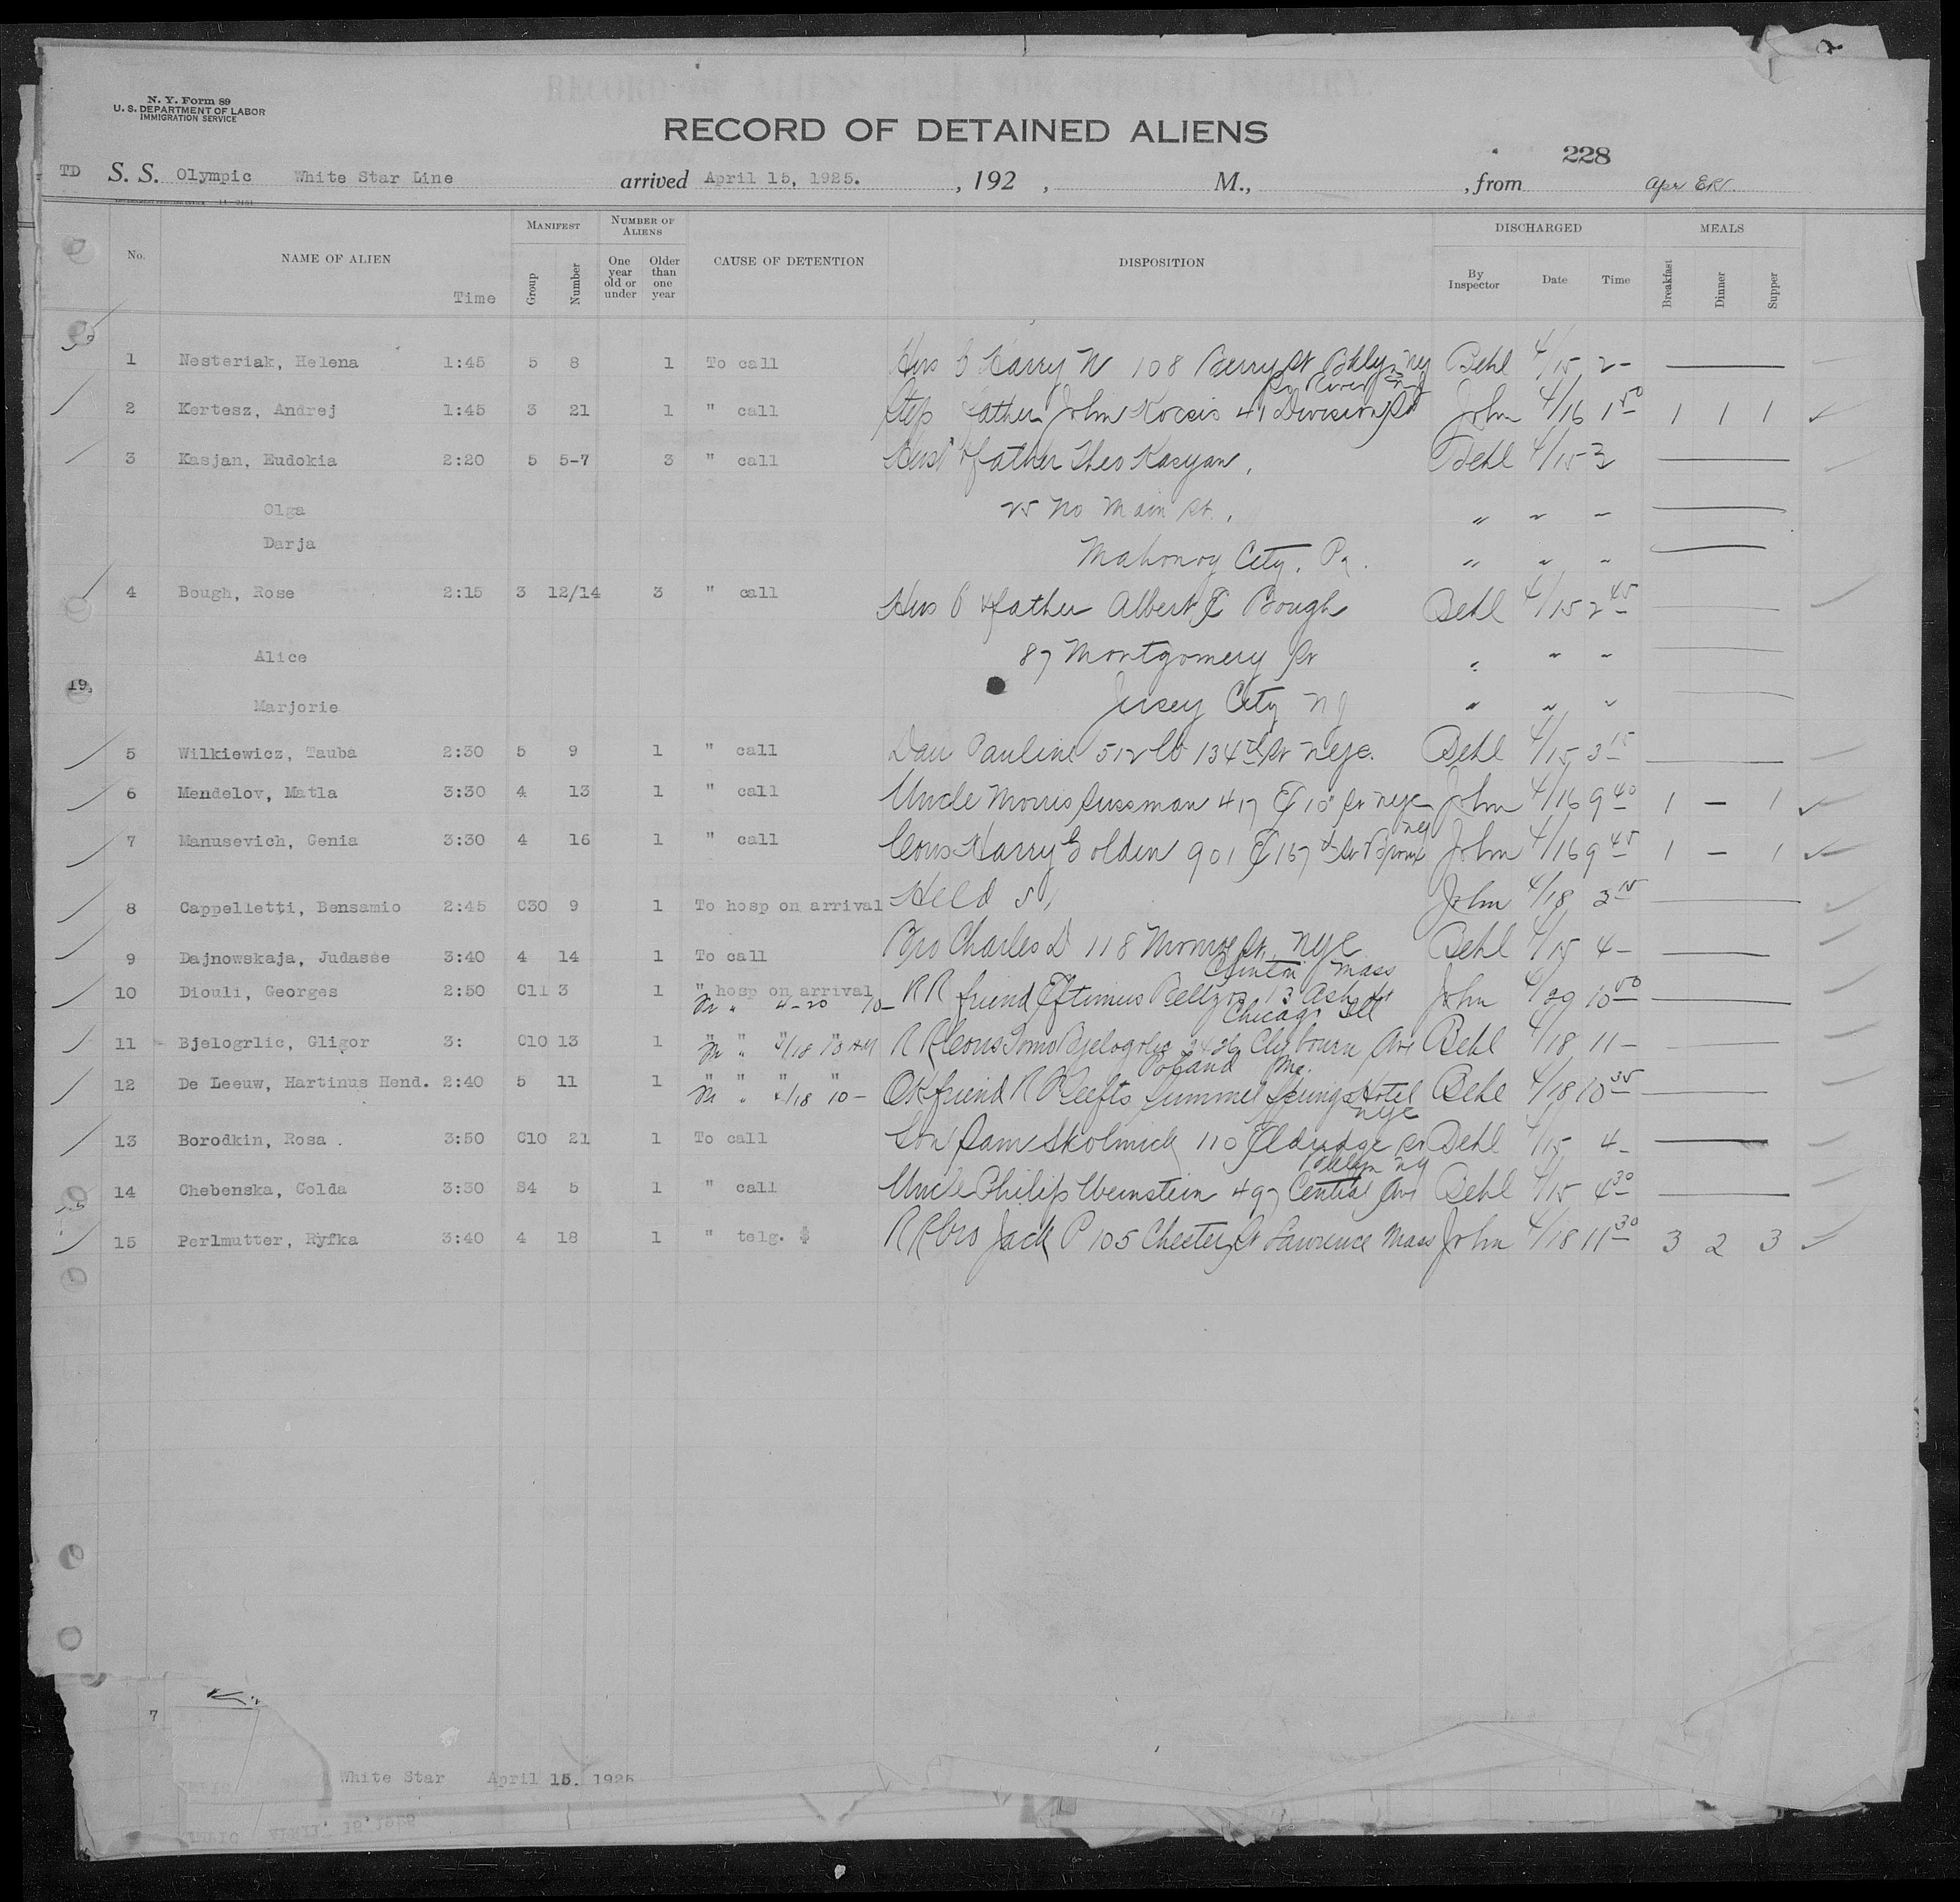 N. Y. Form 89
U. S. DEPARTMENT OF LABOR
IMMIGRATION SERVICE
RECORD OF DETAINED ALIENS
228
TD S. S. Olympic White Star Line arrived April 15, 1925. , 192 , M., , from
No. NAME OF ALIEN Time MANIFEST Group Number NUMBER OF ALIENS One year old or under Older than one year CAUSE OF DETENTION DISPOSITION DISCHARGED By Inspector Date Time MEALS Breakfast Dinner Supper
1 Nesteriak, Helena 1:45 5 8 1 To call Hus Harry N 108 Berry St Bklyn NY Behl 4/15 2-
So River NJ
2 Kertesz, Andrej 1:45 3 21 1 " call Step father John Kocsis 41 Division St John 4/16 1 50 1 1 1
3 Kasjan, Eudokia 2:20 5 5-7 3 " call Hus & father Theo Kasyan, Behl 4/15 3
Olga 25 No Main St, " " "
Darja Mahonoy City, Pa. " " "
4 Bough, Rose 2:15 3 12/14 3 " call Hus & father Albert E Bough Behl 4/15 2 45
Alice 87 Montgomery St " " "
19.
Marjorie Jersey City NJ " " "
5 Wilkiewicz, Tauba 2:30 5 9 1 " call Dau Pauline 512 W 134th St NYC. Behl 4/15 3 15
6 Mendelov, Matla 3:30 4 13 1 " call Uncle Morris Sussman 417 E 10" St NYC John 4/16 9 40 1 - 1
NY
7 Manusevich, Genia 3:30 4 16 1 " call Cous Harry Golden 901 E 167th St Bronx John 4/16 9 45 1 - 1
8 Cappelletti, Bensamio 2:45 C30 9 1 To hosp on arrival Held John 4/18 3 15
9 Dajnowskaja, Judasse 3:40 4 14 1 To call Bro Charles D 118 Monroe St, NYC Behl 4/15 4-
Clinton Mass
10 Diouli, Georges 2:50 C11 3 1 " hosp on arrival RR friend Eftimius 13 Ash St John 4/29 10 50
4-20 10-
Chicago Ill
11 Bjelogrlic, Gligor 3: C10 13 1 " " " " RR Cous Tomo Bjelogrlic 2426 Clybourn Ave Behl 4/18 11-
4/18 10 AM
Poland Me.
12 De Leeuw, Hartinus Hend. 2:40 5 11 1 " " " " OK friend R Reefts Summel Springs Hotel Behl 4/18 10 35
4/18 10-
NYC
13 Borodkin, Rosa . 3:50 C10 21 1 To call Son Sam Skolnick 110 Eldridge St Behl 4/15 4-
Bklyn NY
14 Chebenska, Golda 3:30 S4 5 1 " call Uncle Philip Weinstein 497 Central Ave Behl 4/15 4 30
15 Perlmutter, Ryfka 3:40 4 18 1 " telg. $ RR bro Jack P 105 Chester St Lawrence Mass John 4/18 11 30 3 2 3
7
White Star April 15, 1925